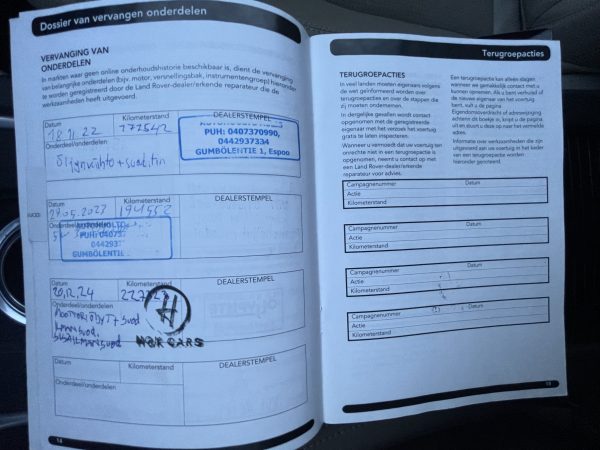 Dossier van vervangen onderdelen
VERVANGING VAN
ONDERDELEN
In markten waar geen online onderhoudshistorie beschikbaar is, dient de vervanging
van belangrijke onderdelen (bijv. motor, versnellingsbak, instrumentengroep) hieronder
te worden geregistreerd door de Land Rover-dealer/erkende reparateur die de
werkzaamheden heeft uitgevoerd.
Datum Kilometerstand DEALERSTEMPEL
18.11.22 177542
Onderdeel/onderdelen
Öljynvaihto + suod.tin
PUH: 0407370990,
0442937334
GUMBÖLENTIE 1, Espoo
Datum Kilometerstand DEALERSTEMPEL
29.05.2023 194552
Onderdeel/onderdelen
PUH: 04073
044293
GUMBÖLENTIE
Datum Kilometerstand DEALERSTEMPEL
20.12.24
Onderdeel/onderdelen
MOOTTORIÖLJYT + suod
H
WÜR CARS
Datum Kilometerstand DEALERSTEMPEL
Onderdeel/onderdelen
14
Terugroepacties
TERUGROEPACTIES
In veel landen moeten eigenaars volgens
de wet geïnformeerd worden over
terugroepacties en over de stappen die
zij moeten ondernemen.
In dergelijke gevallen wordt contact
opgenomen met de geregistreerde
eigenaar met het verzoek het voertuig
gratis te laten inspecteren.
Wanneer u vermoedt dat uw voertuig ten
onrechte niet in een terugroepactie is
opgenomen, neemt u contact op met
een Land Rover-dealer/erkende
reparateur voor advies.
Een terugroepactie kan alleen slagen
wanneer we gemakkelijk contact met u
kunnen opnemen. Als u bent verhuisd of
de nieuwe eigenaar van het voertuig
bent, vult u de pagina
Eigendomsoverdracht of adreswijziging
achterin dit boekje in, knipt u de pagina
uit en stuurt u deze op naar het vermelde
adres.
Informatie over werkzaamheden die zijn
uitgevoerd aan uw voertuig in het kader
van een terugroepactie worden
hieronder genoteerd.
Campagnenummer Datum
Actie
Kilometerstand
Campagnenummer Datum
Actie
Kilometerstand
Campagnenummer Datum
Actie
Kilometerstand
Campagnenummer Datum
Actie
Kilometerstand